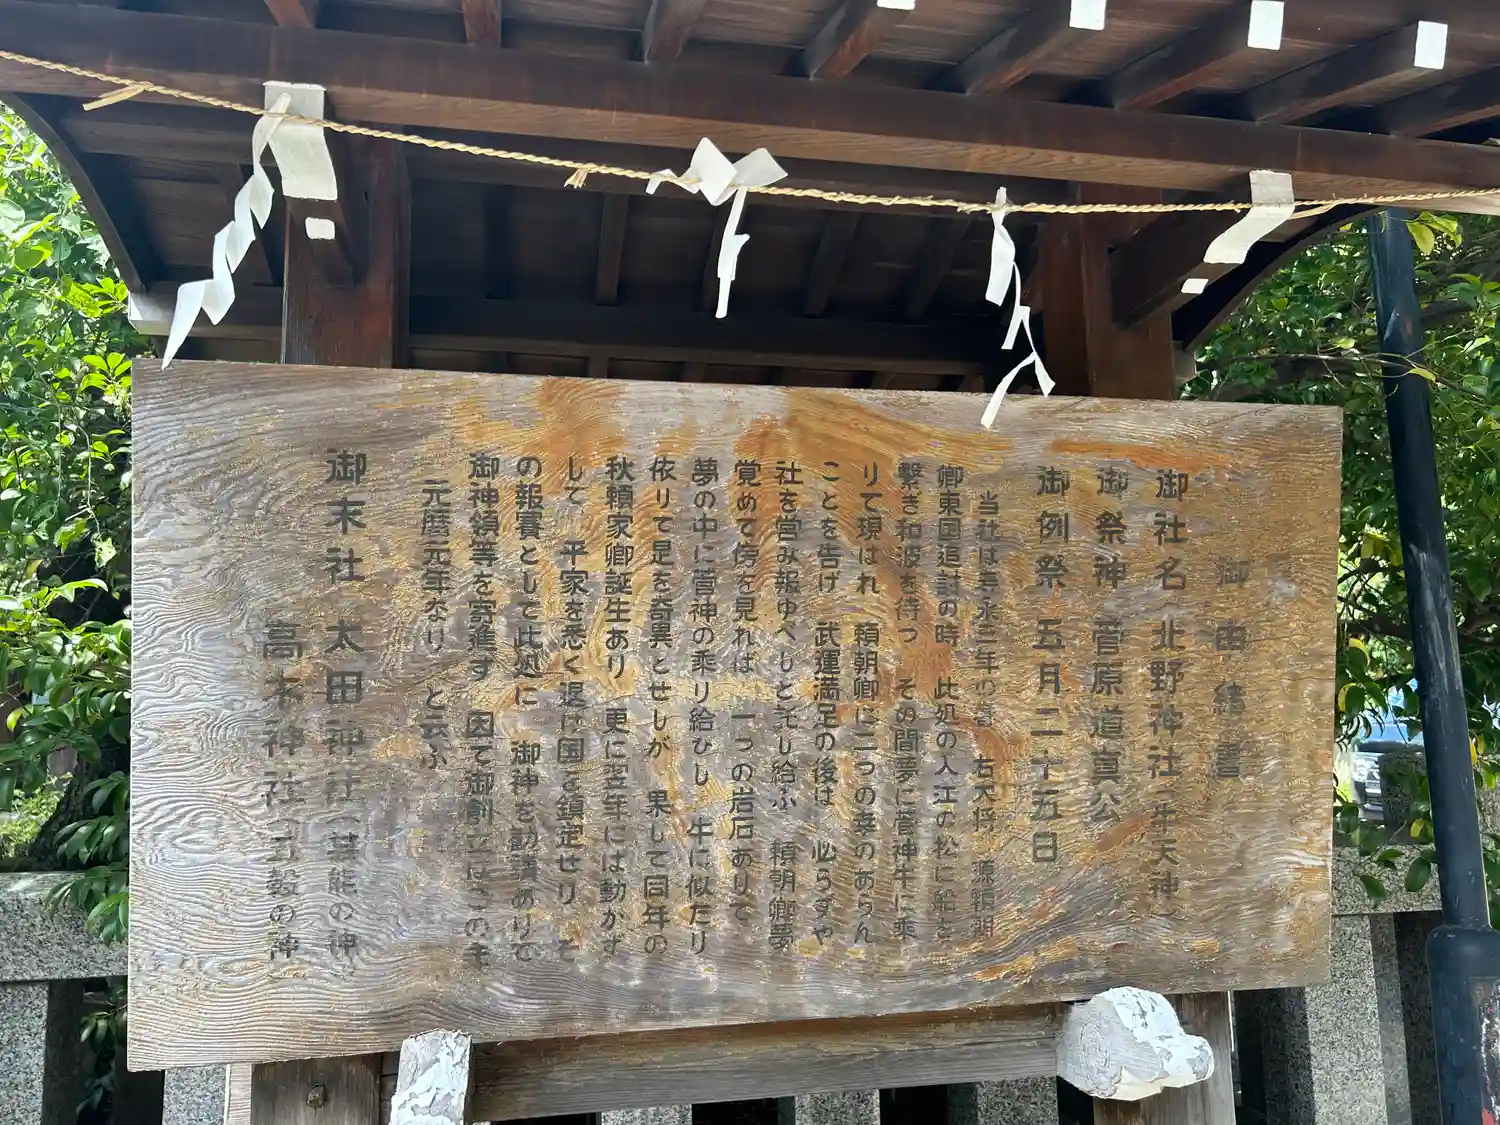 御由緒書
御社名 北野神社（牛天神）
御祭神 菅原道真公
御例祭 五月二十五日
当社は寿永三年の春 右大将 源頼朝
卿東国追討の時 此処の入江の松に船を
繋ぎ和波を待つ その間夢に菅神牛に乘
りて現はれ 頼朝卿に二つの幸のあらん
ことを告げ 武運満足の後は 必らずや
社を営み報ゆべしと示し給ふ 頼朝卿夢
覚めて傍を見れば 一つの岩石ありて
夢の中に菅神の乘り給ひし 牛に似たり
依りて是を奇異とせしが 果して同年の
秋頼家卿誕生あり 更に翌年には動かず
して 平家を悉く退け国を鎮定せり そ
の報賽として此処に 御神を勧請ありて
御神領等を寄進す 因て御創立はこの年
元暦元年なり と云ふ
御末社 太田神社（芸能の神
高木神社（五穀の神